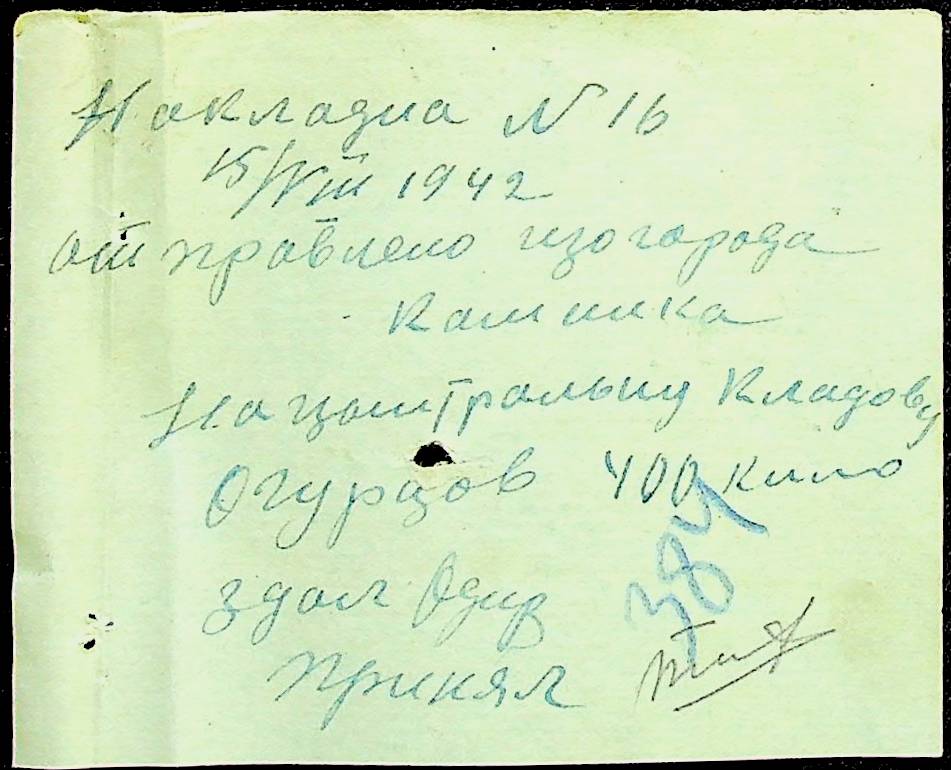 Накладна N 16
15/VIII 1942
отправлено изогорода
Каминка
На цонтральну Кладову
Огурцов 400 кило
384
здал
Принял